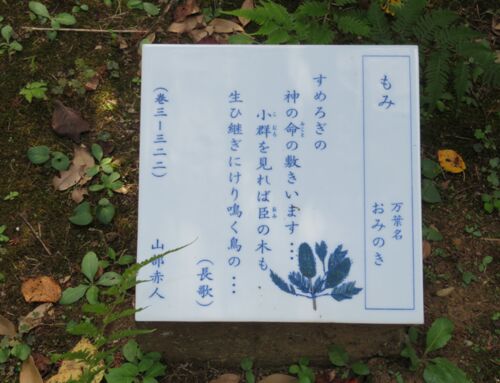 もみ
万葉名
おみのき
すめろぎの
神の命の敷きいます…
小群を見れば臣の木も.
生ひ継ぎにけり鳴く鳥の…
(長歌)
(巻三ー三二二)
山部赤人